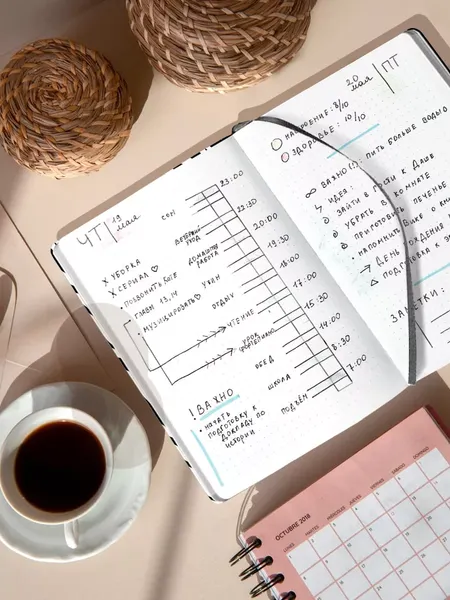 ЧТ | 19 мая
X УБОРКА
X СЕРИАЛ ♡
• ПОЗВОНИТЬ
• ГЛАВЫ 13, 14
• МУЗИЦИРОВАТЬ
СОН
ВЕЧЕРНИЙ
УХОД
ДОМАШНЯЯ
РАБОТА
УЖИН
ОТДЫХ
ЧТЕНИЕ
УРОК
ФОРТЕПИАНО
ОБЕД
ШКОЛА
ПОДЪЁМ
23:00
22:30
20:00
19:30
18:00
17:00
15:30
14:00
8:30
7:00
! ВАЖНО
• НАЧАТЬ
ПОДГОТОВКУ К
ДОКЛАДУ ПО
ИСТОРИИ
20 мая | ПТ
НАСТРОЕНИЕ: 8/10
ЗДОРОВЬЕ: 10/10
ВАЖНО (!): ПИТЬ БОЛЬШЕ ВОДЫ
ИДЕЯ:
ЗАЙТИ В ГОСТИ К ДАШЕ
УБРАТЬ В КОМНАТЕ
ПРИГОТОВИТЬ ПЕЧЕНЬЕ
• НАПОМНИТЬ
→ ДЕНЬ РОЖДЕНИЯ
△ ПОДГОТОВКА К
ЗАМЕТКИ:
OCTUBRE 2018
LUNES MARTES MIÉRCOLES JUEVES VIERNES SÁBADO DOMINGO